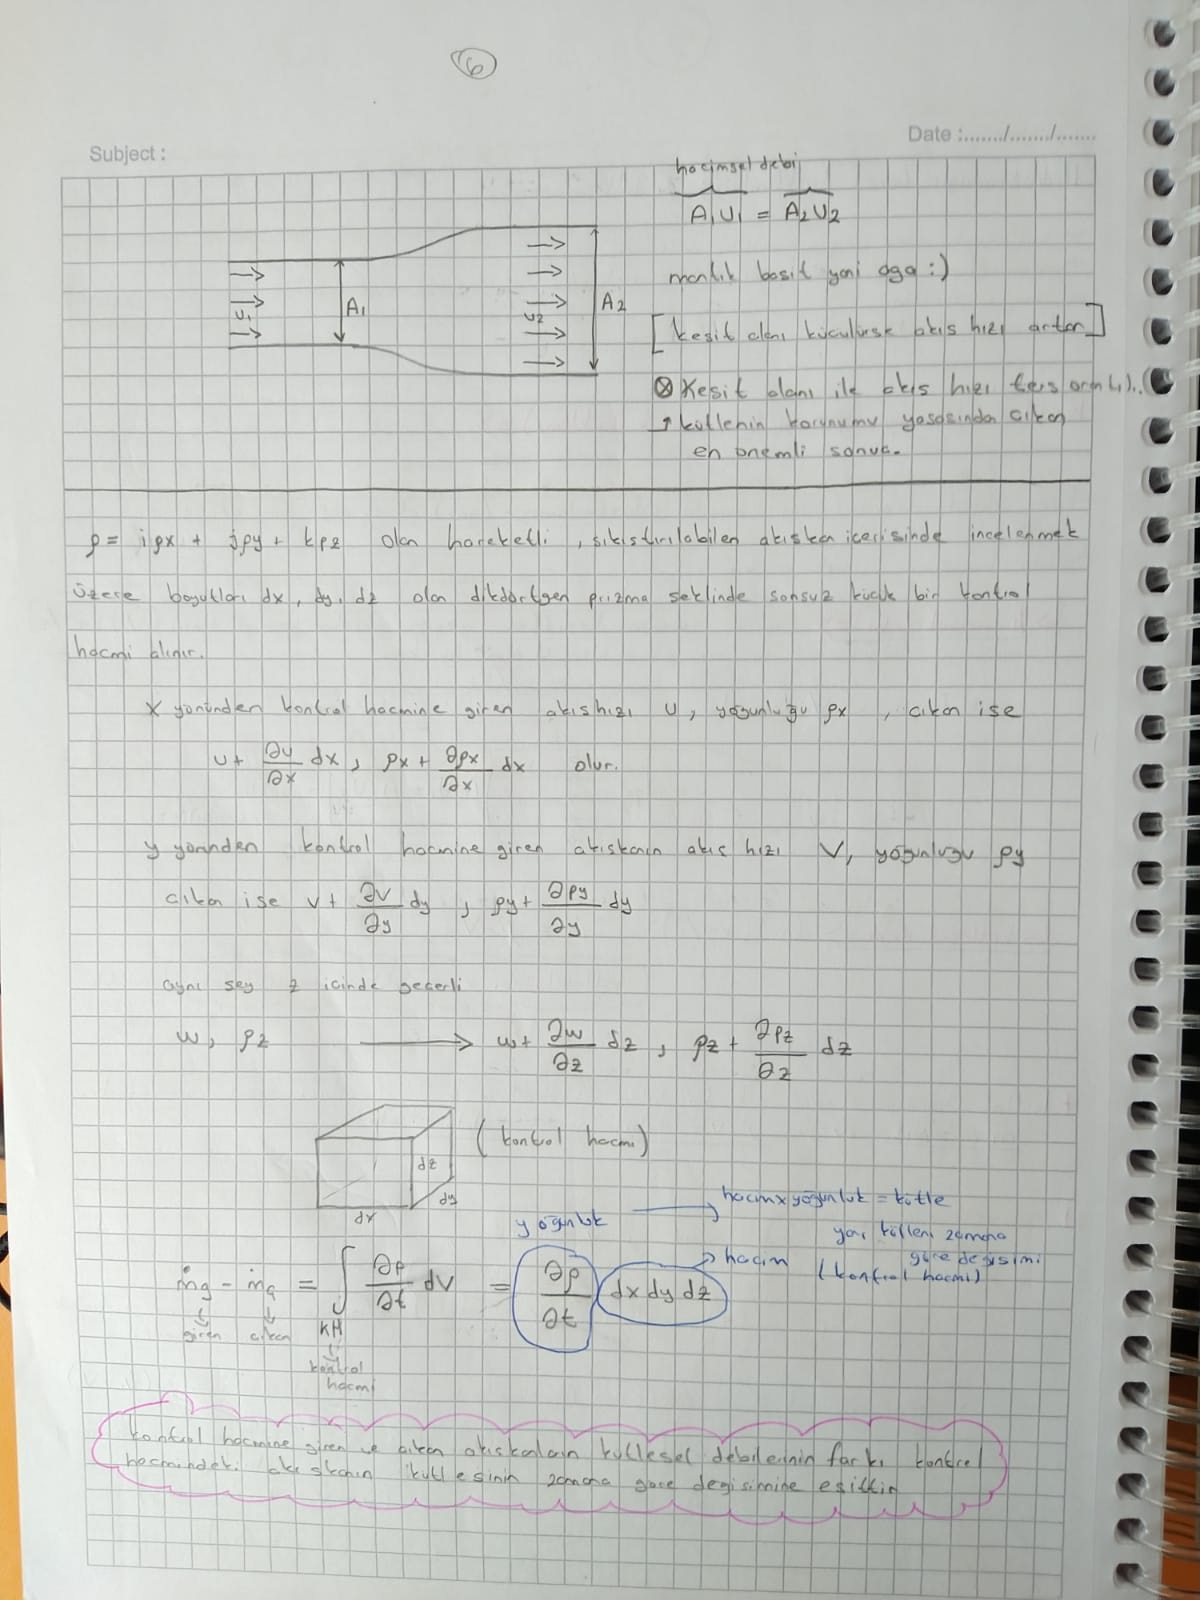 6
Subject :
Date :......./......./.......
hacimsel debi
A₁U₁ = A₂U₂
U₁
A₁
U₂
A₂
mantık basit yani aga :)
[kesit alanı küçülürse akış hızı artar]
⊗ Kesit alanı ile akış hızı ters orantılı.
↗ kütlenin korunumu yasasından çıkan
en önemli sonuç.
ρ = iρx + jρy + kρz olan hareketli, sıkıştırılabilen akışkan içerisinde incelenmek
üzere boyutları dx, dy, dz olan dikdörtgen prizma şeklinde sonsuz küçük bir kontrol
hacmi alınır.
x yönünden kontrol hacmine giren akış hızı u, yoğunluğu ρx, çıkan ise
u + ∂u/∂x dx, ρx + ∂ρx/∂x dx olur.
y yönünden kontrol hacmine giren akışkanın akış hızı V, yoğunluğu ρy
çıkan ise v + ∂v/∂y dy, ρy + ∂ρy/∂y dy
aynı şey z içinde geçerli
w, ρz → w + ∂w/∂z dz, ρz + ∂ρz/∂z dz
(kontrol hacmi)
dz
dy
dx
yoğunluk → hacim x yoğunluk = kütle
yani kütleni zamana
göre değişimi
(kontrol hacmi)
→ hacim
ṁg - ṁç = ∫ ∂ρ/∂t dV = ∂ρ/∂t dx dy dz
giren çıkan KH
kontrol
hacmi
kontrol hacmine giren ve çıkan akışkanların kütlesel debilerinin farkı kontrol
hacmindeki akışkanın kütlesinin zamana göre değişimine eşittir